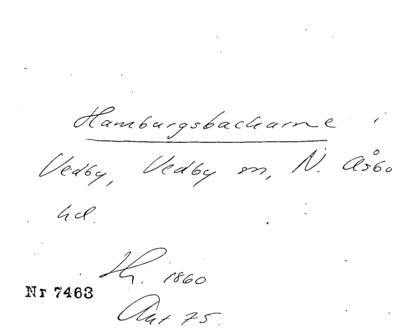 Hamburgsbackarne i
Vedby, Vedby sn, N. Åsbo
hd.
Th. 1860
Nr 7463
Ant 75.